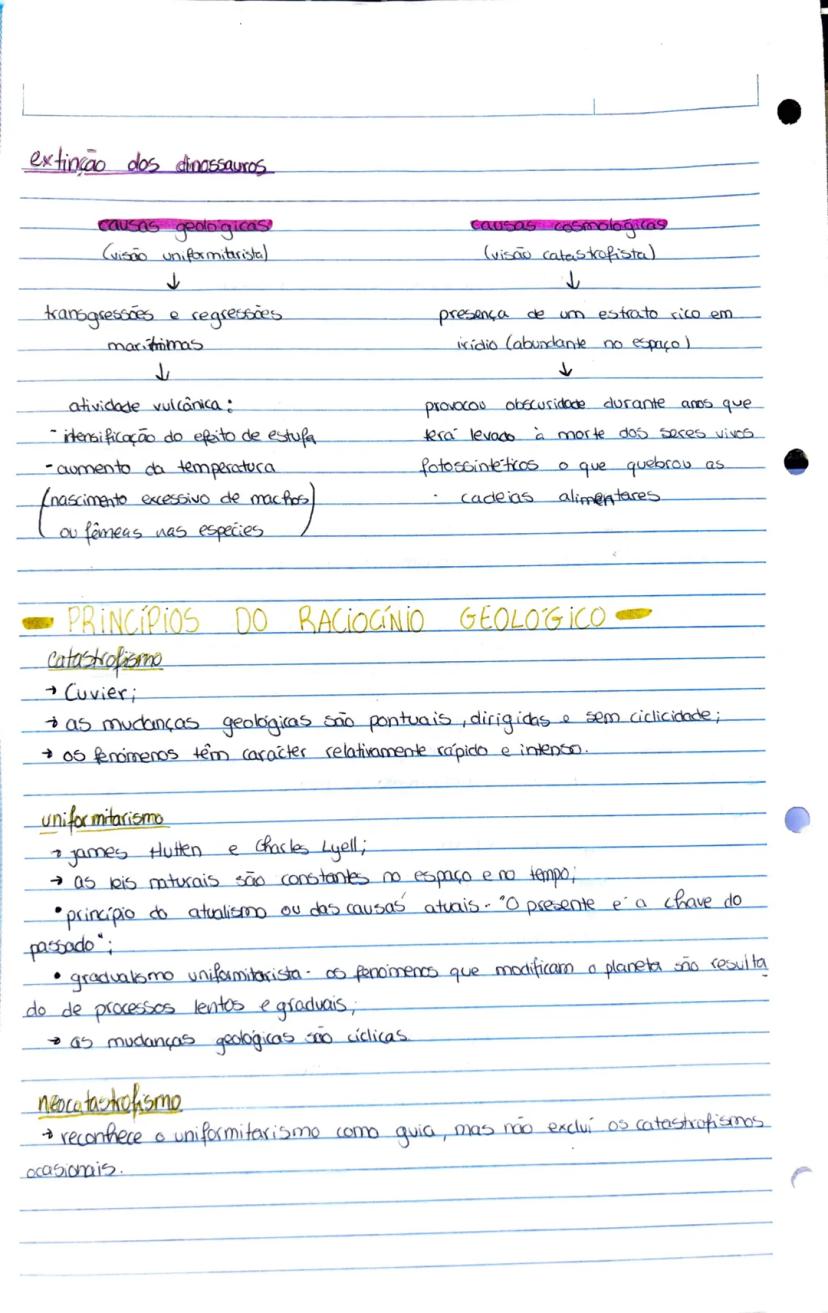 extinção dos dinossauros
causas geológicas
(visão uniformitarista)
↓
transgressões e regressões
marítimas
↓
atividade vulcânica:
- intensificação do efeito de estufa
- aumento da temperatura
(nascimento excessivo de machos
ou fêmeas nas espécies)
causas cosmológicas
(visão catastrofista)
↓
presença de um estrato rico em
irídio (abundante no espaço)
↓
provocou obscuridade durante anos que
terá levado à morte dos seres vivos
fotossintéticos o que quebrou as
cadeias alimentares
PRINCÍPIOS DO RACIOCÍNIO GEOLÓGICO
catastrofismo
→ Cuvier;
→ as mudanças geológicas são pontuais, dirigidas e sem ciclicidade;
→ os fenómenos têm carácter relativamente rápido e intenso.
uniformitarismo
→ james Hutten e Charles Lyell;
→ as leis naturais são constantes no espaço e no tempo;
• princípio do atualismo ou das causas atuais - "O presente é a chave do
passado";
• gradualismo uniformitarista - os fenómenos que modificam o planeta são resulta
do de processos lentos e graduais;
→ as mudanças geológicas são cíclicas.
neocatastrofismo
→ reconhece o uniformitarismo como guia, mas não excluí os catastrofismos
ocasionais.